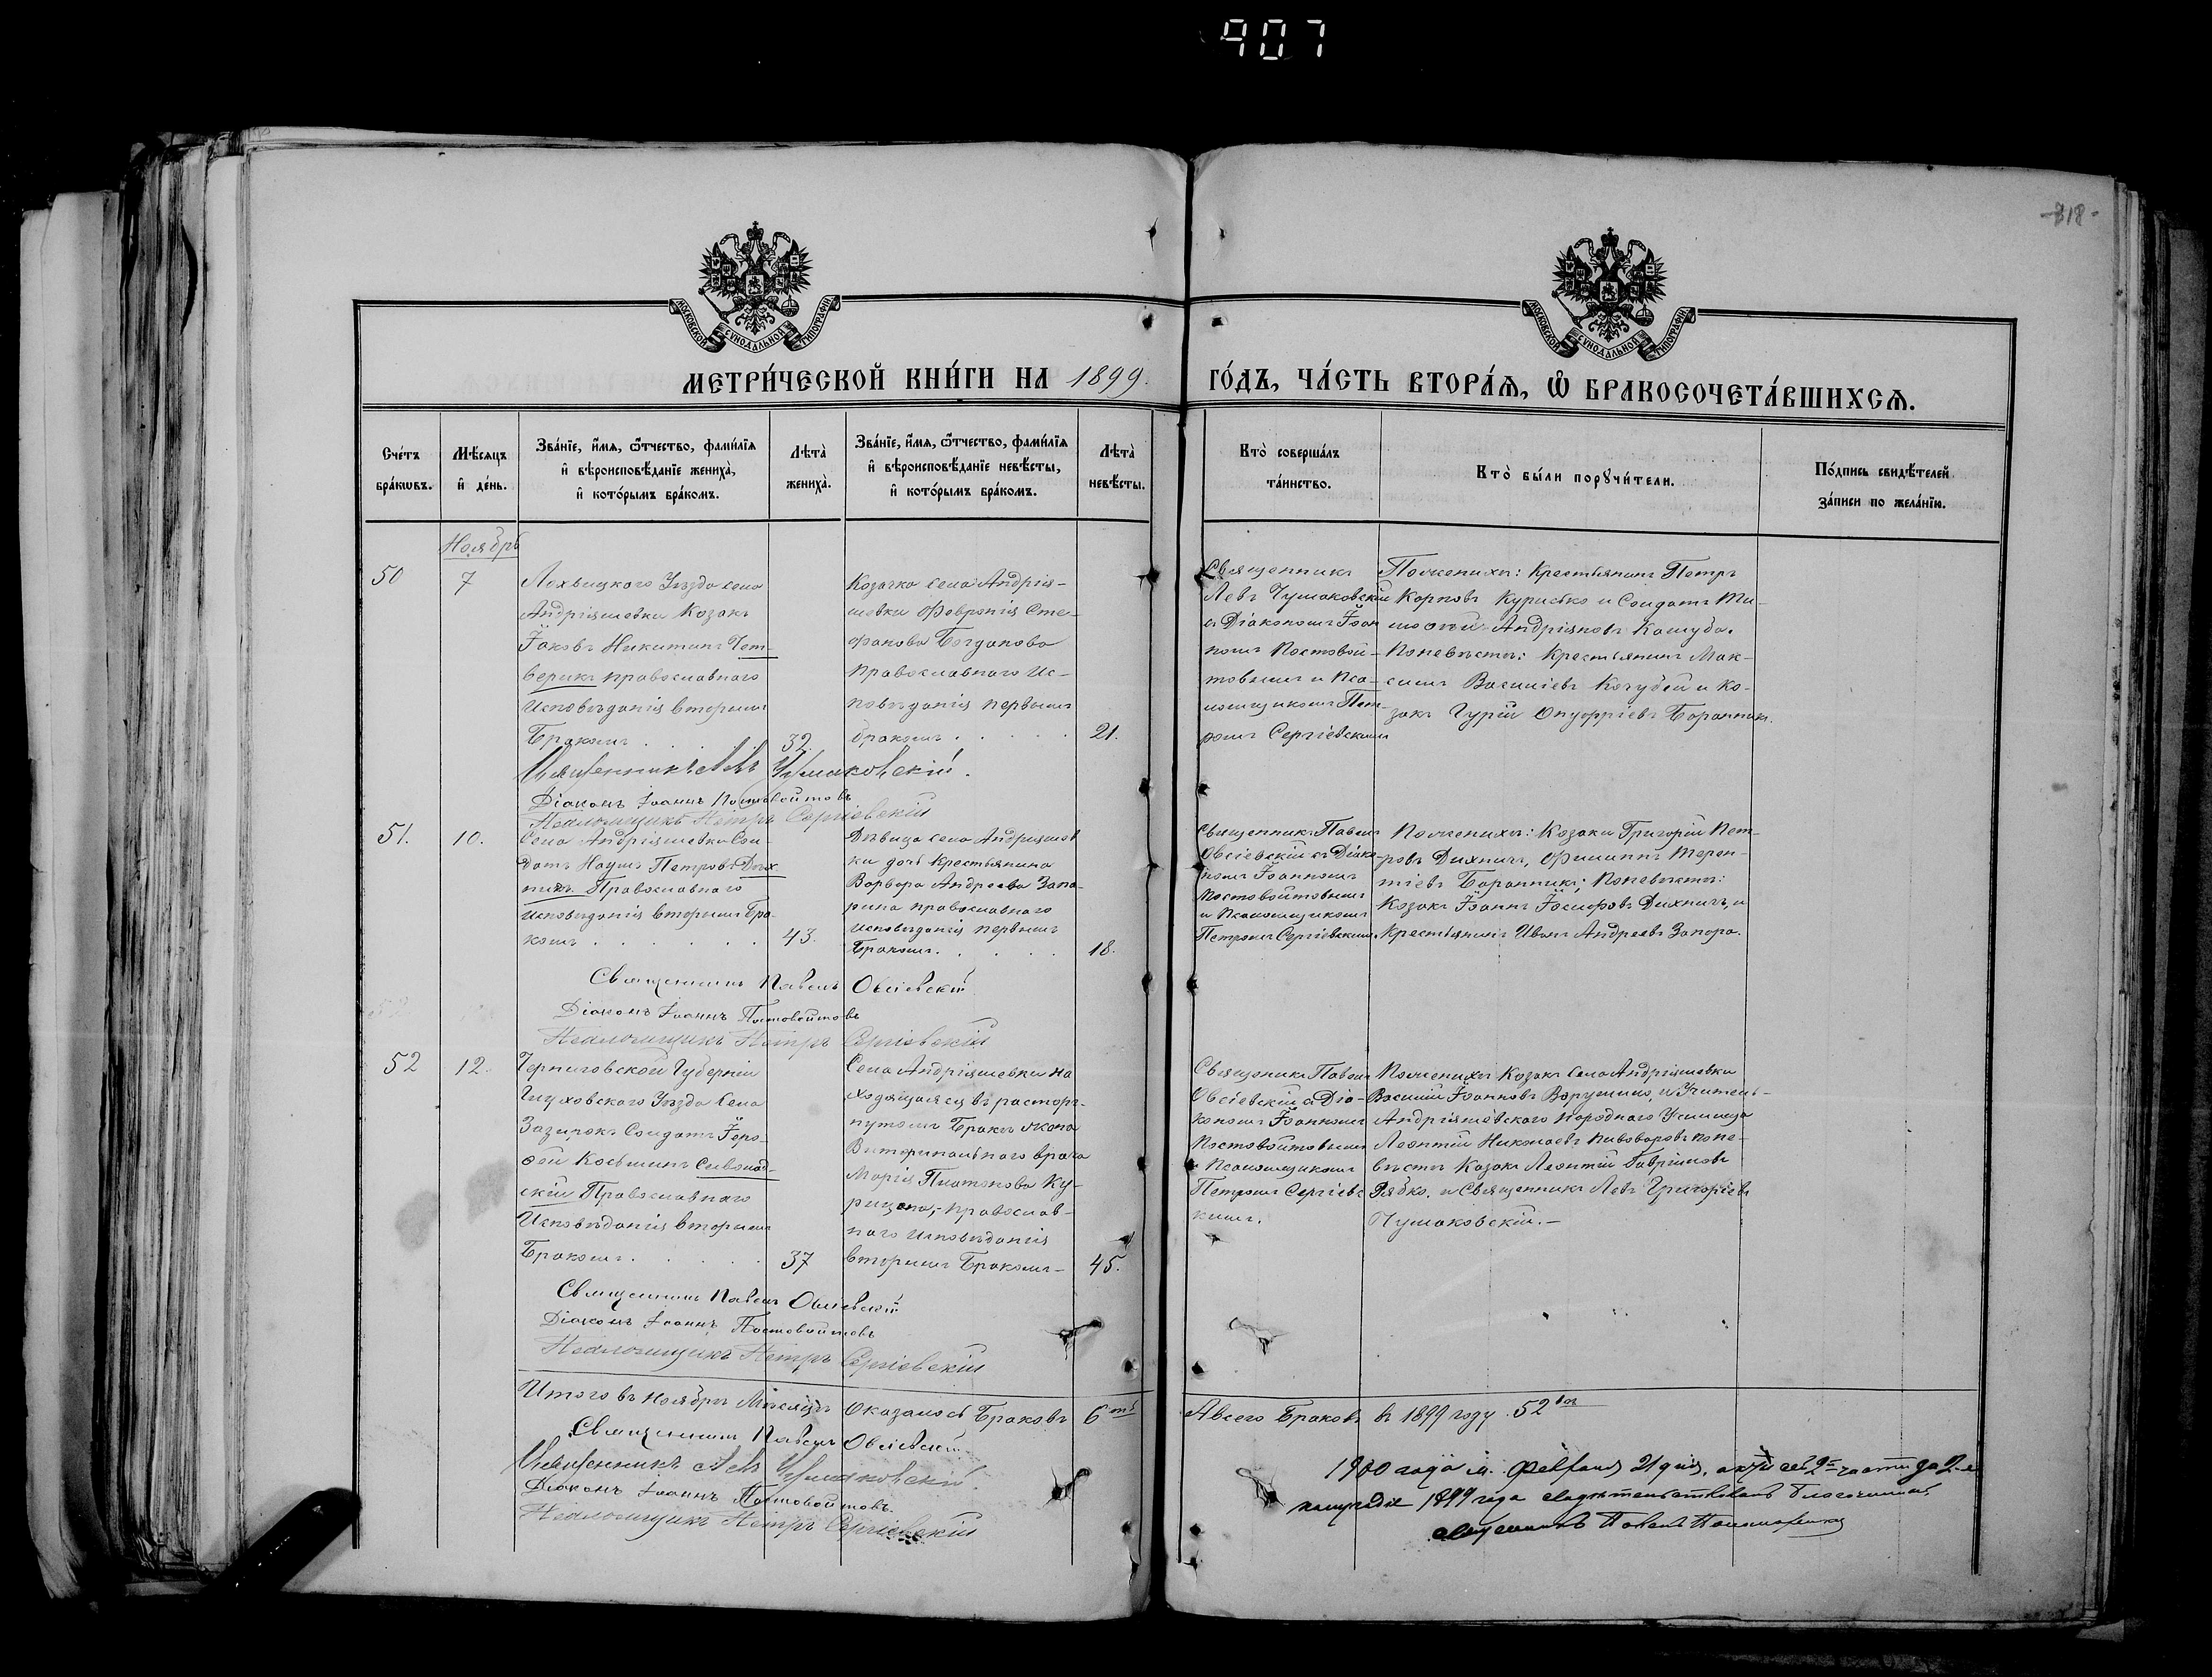 907
-818-
МОСКОВСКОЙ СѴНОДАЛЬНОЙ ТИПОГРАФІИ
МОСКОВСКОЙ СѴНОДАЛЬНОЙ ТИПОГРАФІИ
МЕТРИ́ЧЕСКОЙ КНИ́ГИ НА 1899.
ГО́ДЪ, ЧА́СТЬ ВТОРА́Ѧ, Ѽ БРАКОСОЧЕТА́ВШИХСѦ.
Сче́тъ бра́кѡвъ.
Мѣ́сяцъ и҆ де́нь.
Зва́нїе, и҆́мѧ, ѻ҆́тчество, фами́лїѧ и҆ вѣроисповѣ́данїе жениха̀, и҆ кото́рымъ бра́комъ.
Лѣта̀ жениха̀.
Зва́нїе, и҆́мѧ, ѻ҆́тчество, фами́лїѧ и҆ вѣроисповѣ́данїе невѣ́сты, и҆ кото́рымъ бра́комъ.
Лѣта̀ невѣ́сты.
Кто̀ соверша́лъ та́инство.
Кто̀ бы́ли порꙋчи́тели.
По́дпись свидѣ́телей за́писи по жела́нїю.
Ноябрь
50
7
Лохвицкого Уѣзда села
Андріяшевки Козакъ
Іаковъ Никитинъ Чет-
верикъ православнаго
исповѣданія вторымъ
Бракомъ . . . . 32.
Козачка села Андрія-
шевки Февронія Сте-
фанова Богданова
православнаго ис-
повѣданія первымъ
бракомъ . . . . . 21.
Священникъ
Левъ Чумаковскій
съ Діакономъ Іоан
номъ Постовой-
товымъ и Пса-
ломщикомъ Пет-
ромъ Сергіевскимъ
Поженихѣ: Крестьянинъ Петръ
Карповъ Курисько и Солдатъ Ти-
моѳей Андріяновъ Кашуба.
Поневѣстѣ: Крестьянинъ Мак-
симъ Василіевъ Кочубей и Ко-
закъ Гурій Онуфріевъ Боранникъ.
Священникъ Левъ Чумаковскій.
Діаконъ Іоаннъ Постовойтовъ
Псаломщикъ Петръ Сергіевскій
51.
10.
Села Андріяшевки Сол-
датъ Наумъ Петровъ Дих
ничъ Православнаго
исповѣданія вторымъ Бра-
комъ . . . . . . 43.
Дѣвица села Андріяшев
ки дочь Крестьянина
Варвара Андреева Запо-
рина православнаго
исповѣданія первымъ
Бракомъ. . . . . 18.
Священникъ Павелъ
Овсіевскій съ Діако-
номъ Іоанномъ
Постовойтовымъ
и Псаломщикомъ
Петромъ Сергіевскимъ.
Поженихѣ: Козаки Григорій Пет-
ровъ Дихничъ, Филиппъ Терен-
тіевъ Боранникъ; Поневѣстѣ:
Козакъ Іоаннъ Іосифовъ Дихничъ, и
Крестьянинъ Иванъ Андреевъ Запора.
Священникъ Павелъ Овсіевскій
Діаконъ Іоаннъ Постовойтовъ
Псаломщикъ Петръ Сергіевскій
52
12.
Черниговской Губерніи
Глуховскаго Уѣзда Села
Зазирокъ Солдатъ Іеро-
ѳей Косьминъ Сивопад-
скій Православнаго
Исповѣданія вторымъ
Бракомъ. . . . . 37
Села Андріяшевки на
ходящаяся въ расторг-
нутомъ Бракѣ жена
Витиринальнаго врача
Марія Платонова Ку-
рицена,- православ-
наго исповѣданія
вторымъ Бракомъ- 45.
Священикъ Павелъ
Овсіевскій съ Діа-
кономъ Іоанномъ
Постовойтовымъ
и Псаломщикомъ
Петромъ Сергіевс
кимъ.
Поженихѣ Козакъ села Андріяшевки
Василій Іоанновъ и Учитель-
Андріяшевскаго Народнаго Училища
Леонтій Николаевъ Пивоваровъ поне-
вѣстѣ Козакъ Леонтій Гавріиловъ
Рядко, и Священникъ Левъ Григоріевъ
Чумаковскій.-
Священникъ Павелъ Овсіевскій
Діаконъ Іоаннъ Постовойтовъ
Псаломщикъ Петръ Сергіевскій
Итого въ Ноябрѣ Мѣсяцѣ Оказалось Браковъ 6ть
Авсего Браковъ въ 1899 году. 52
Священникъ Павелъ Овсіевскій
Священникъ Левъ Чумаковскій.
Діаконъ Іоаннъ Постовойтовъ.
Псаломщикъ Петръ Сергіевскій
1900 года м. Февраля 21 дня, части за 2-е
полугодіе 1899 года свидѣтельствовалъ Благочинный,
священникъ Павелъ Пономаренко